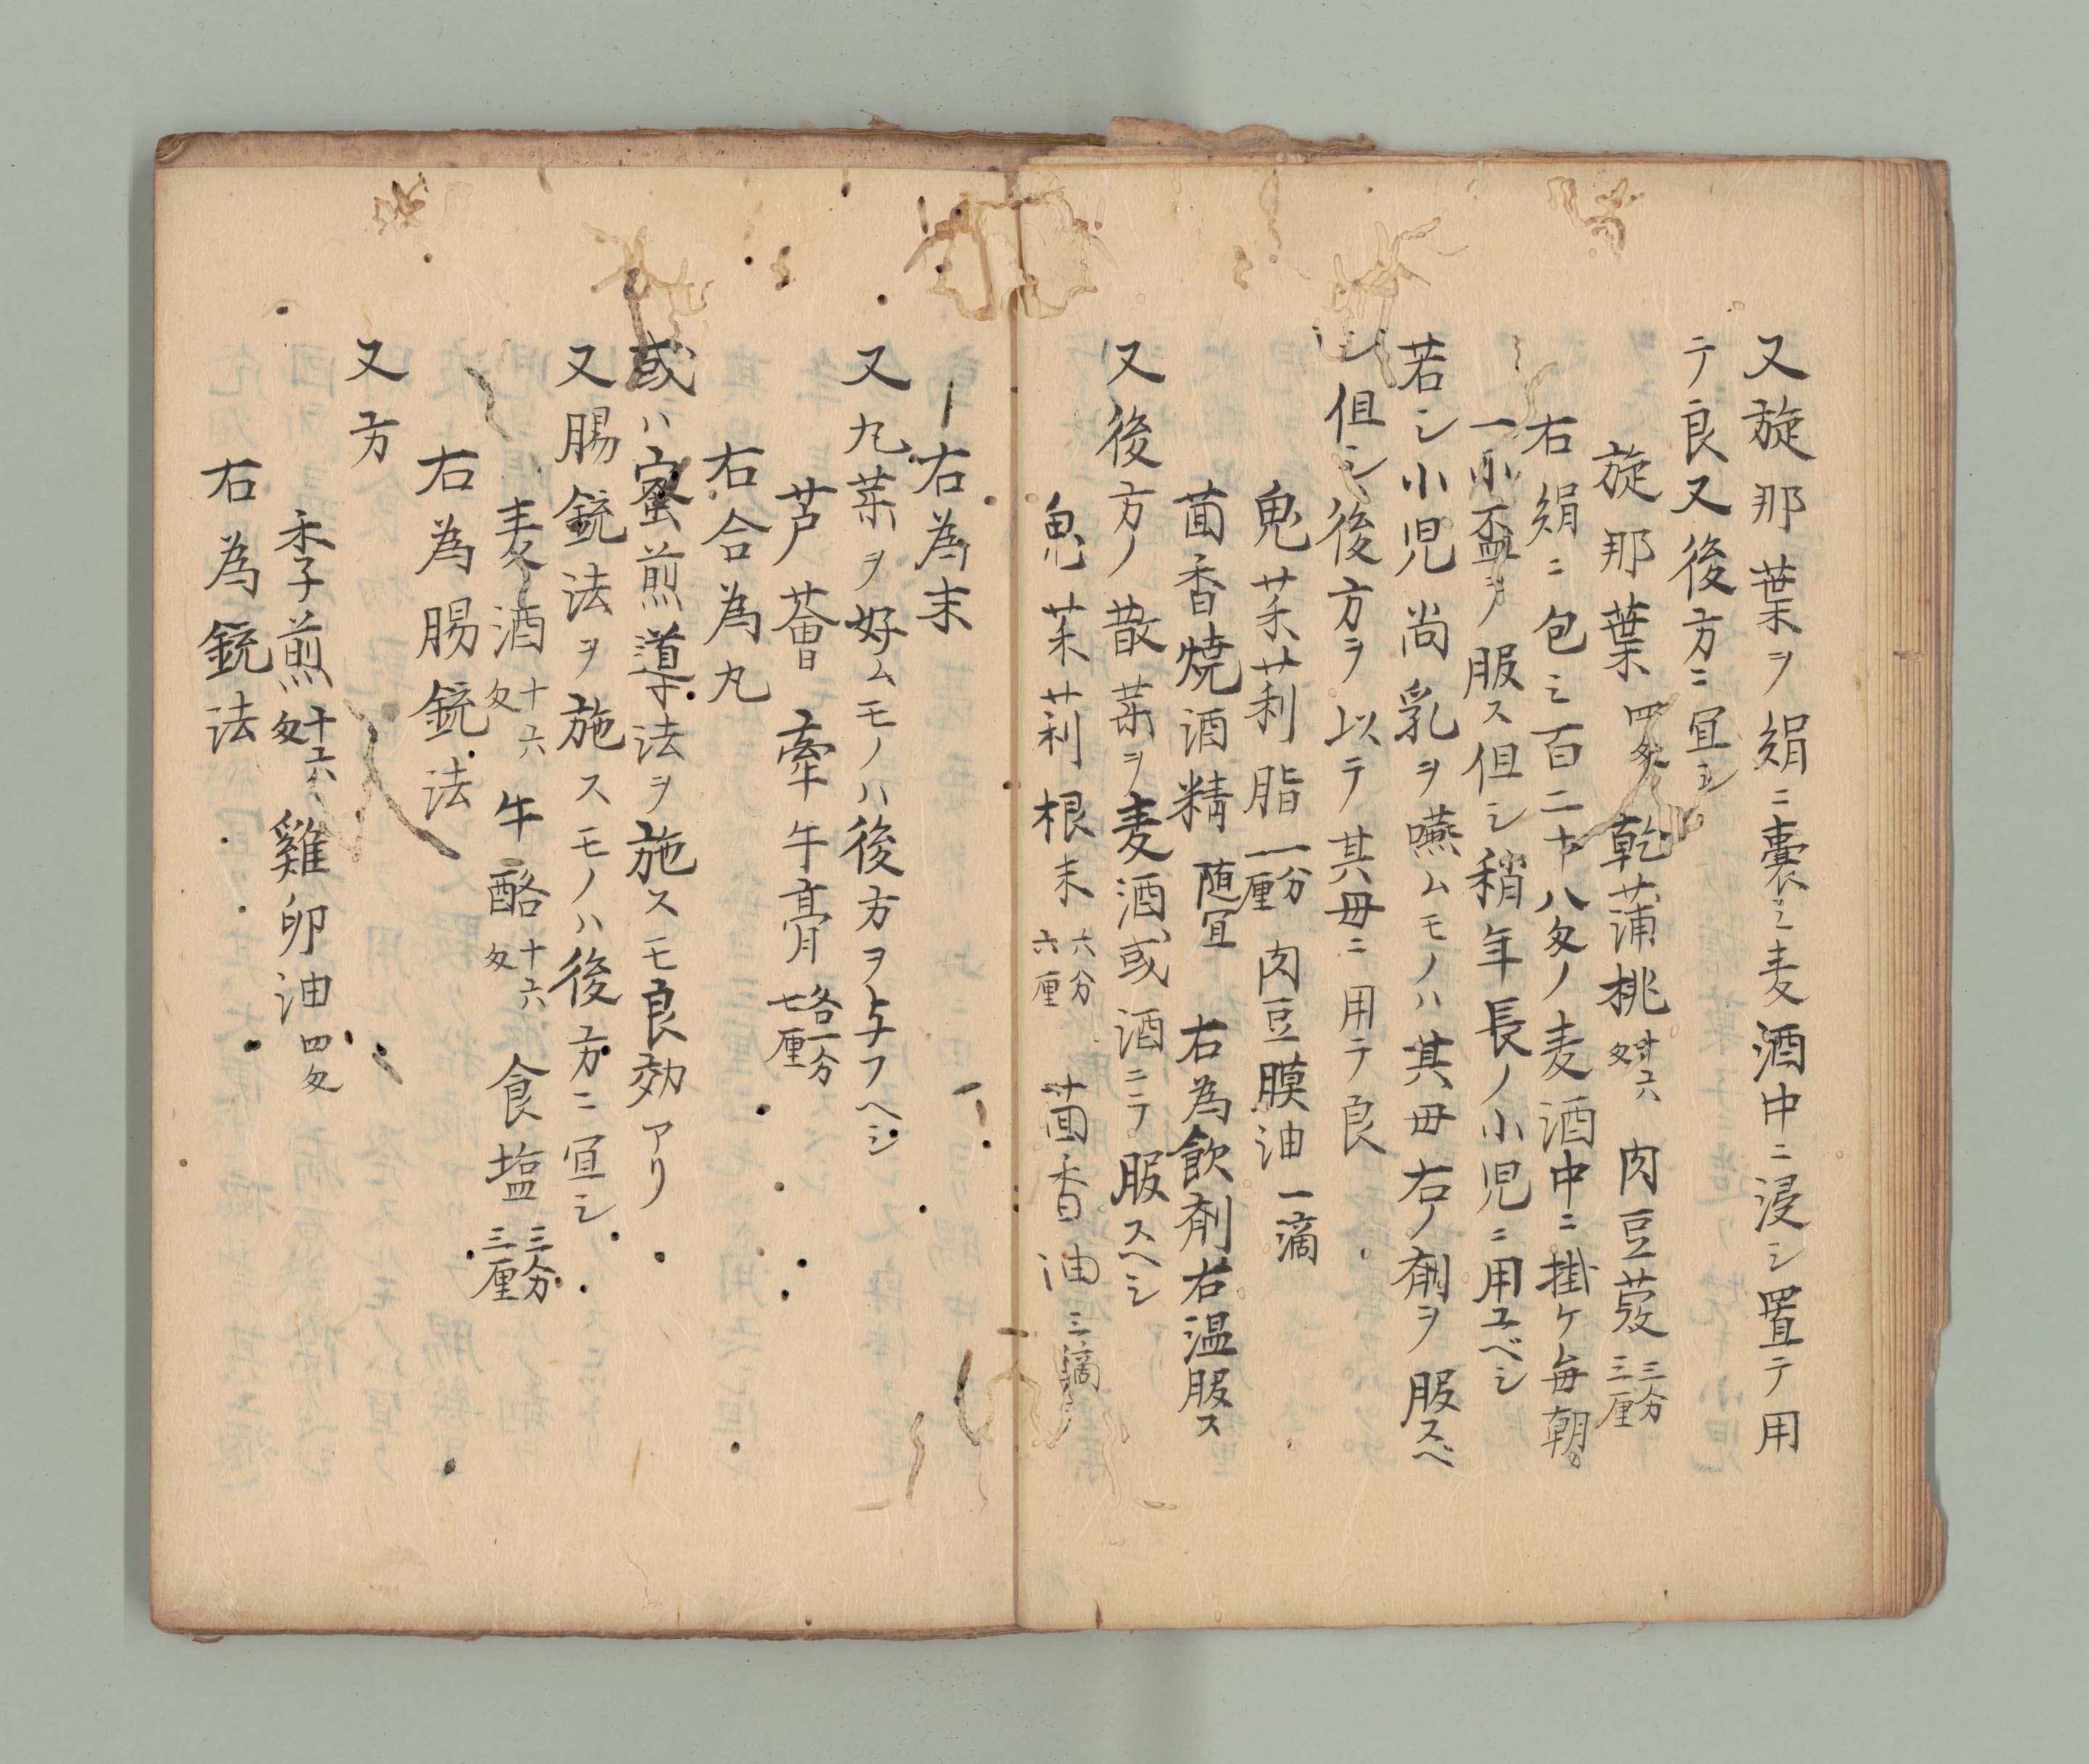 又旋那葉ヲ絹ニ嚢ミ麦酒中ニ浸シ置テ用
テ良又後方ニ宜シ
旋那葉四匁 乾蒲桃十六匁 肉豆蔲三分三厘
右絹ニ包ミ百二十八匁ノ麦酒中ニ掛ケ毎朝
一小盃ヲ服ス但シ稍年長ノ小児ニ用ユベシ
若シ小児尚乳ヲ嚥ムモノハ其毋右ノ剤ヲ服スベ
シ但シ後方ヲ以テ其毋ニ用テ良
鬼茱莉脂一分一厘 肉豆膜油一滴
茴香焼酒精随宜 右為飲剤右温服ス
又後方ノ散薬ヲ麦酒或酒ニテ服スヘシ
鬼茱莉根末六分六厘 茴香油三滴
右為末
又丸薬ヲ好ムモノハ後方ヲ与フヘシ
芦薈 牽牛膏各一分七厘
右合為丸
或ハ蜜煎導法ヲ施スモ良効アリ
又腸銃法ヲ施スモノハ後方ニ宜シ
麦酒十六匁 牛酪十六匁 食塩三分三厘
右為腸銃法
又方
黍子煎十六匁 雞卵油四匁
右為銃法